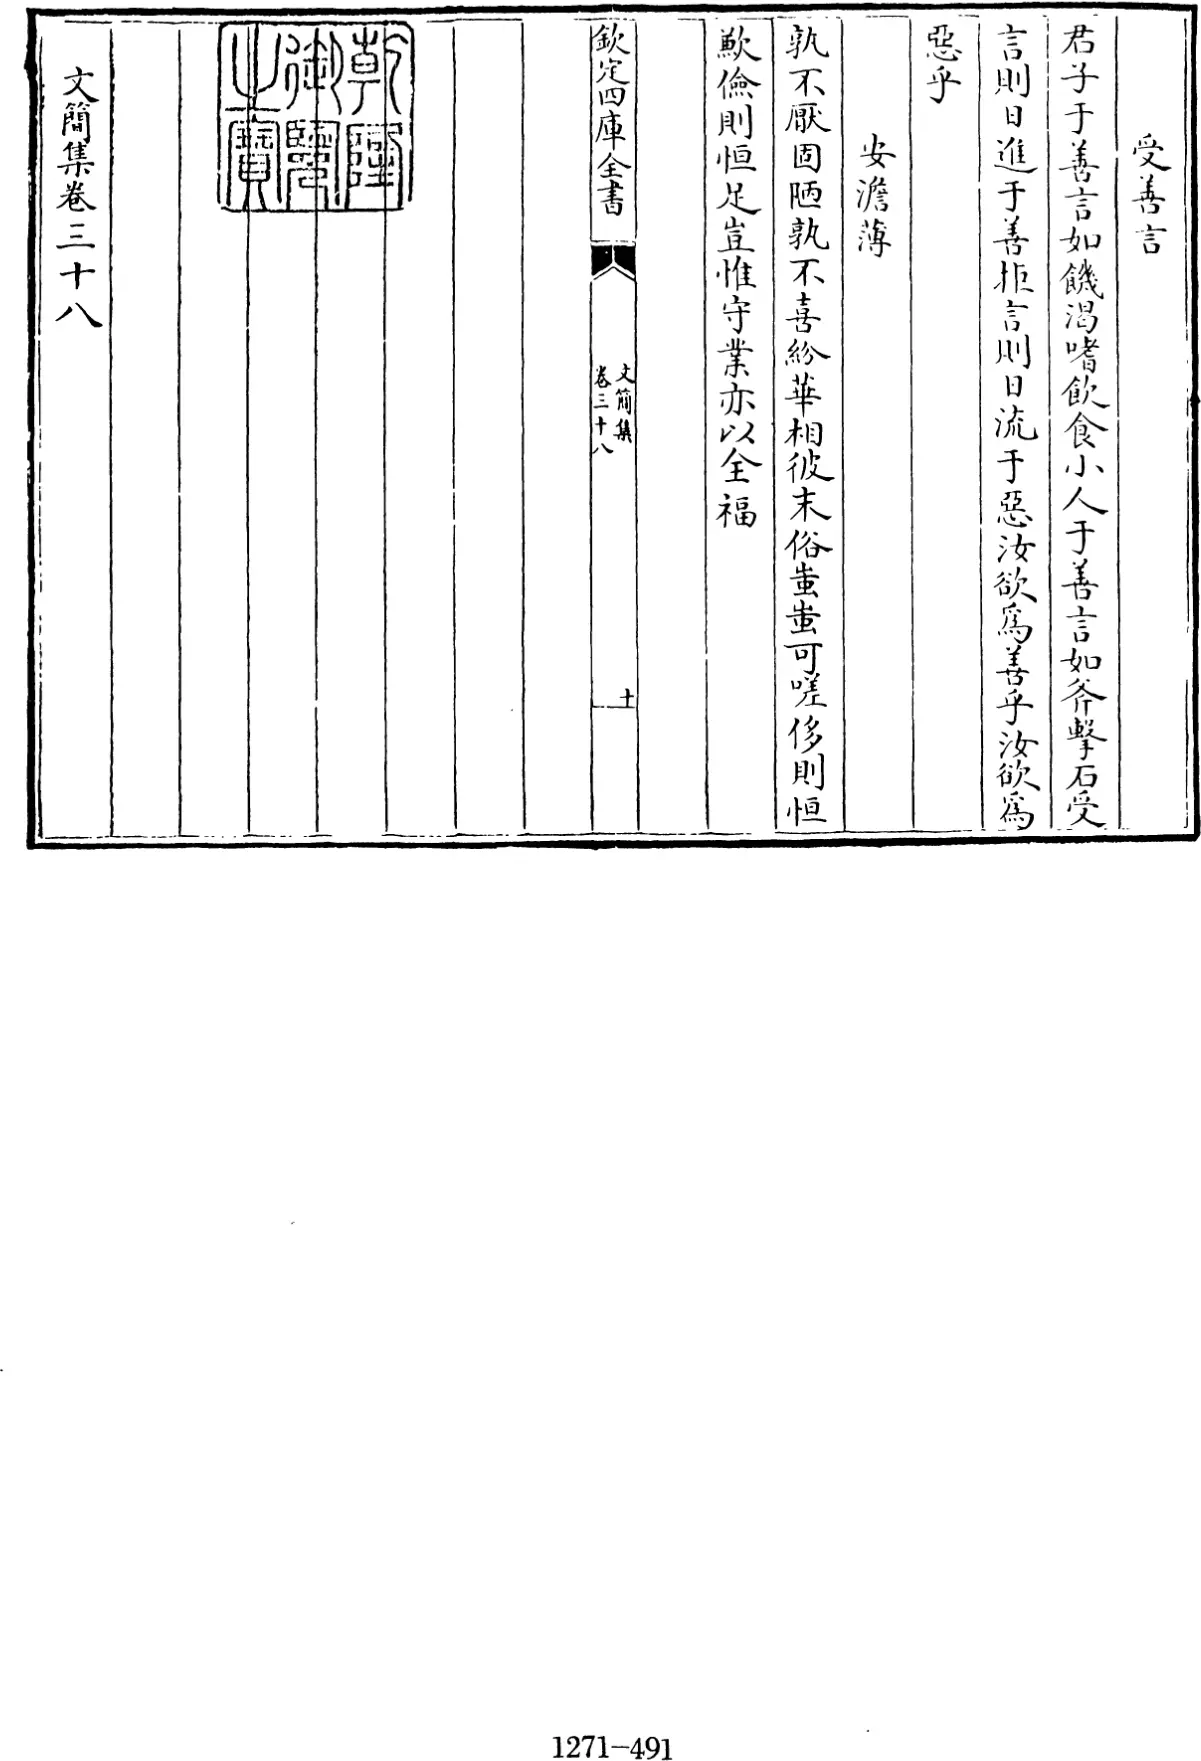 受善言
君子于善言如饑渴嗜飲食小人于善言如斧擊石受
言則日進于善拒言則日流于惡汝欲爲善乎汝欲爲
惡乎
安澹薄
孰不厭固陋孰不喜紛華相彼末俗蚩蚩可嗟侈則恒
歉儉則恒足豈惟守業亦以全福
欽定四庫全書
文簡集
卷三十八
十
乾隆
御覽
之寶
文簡集卷三十八
1271-491